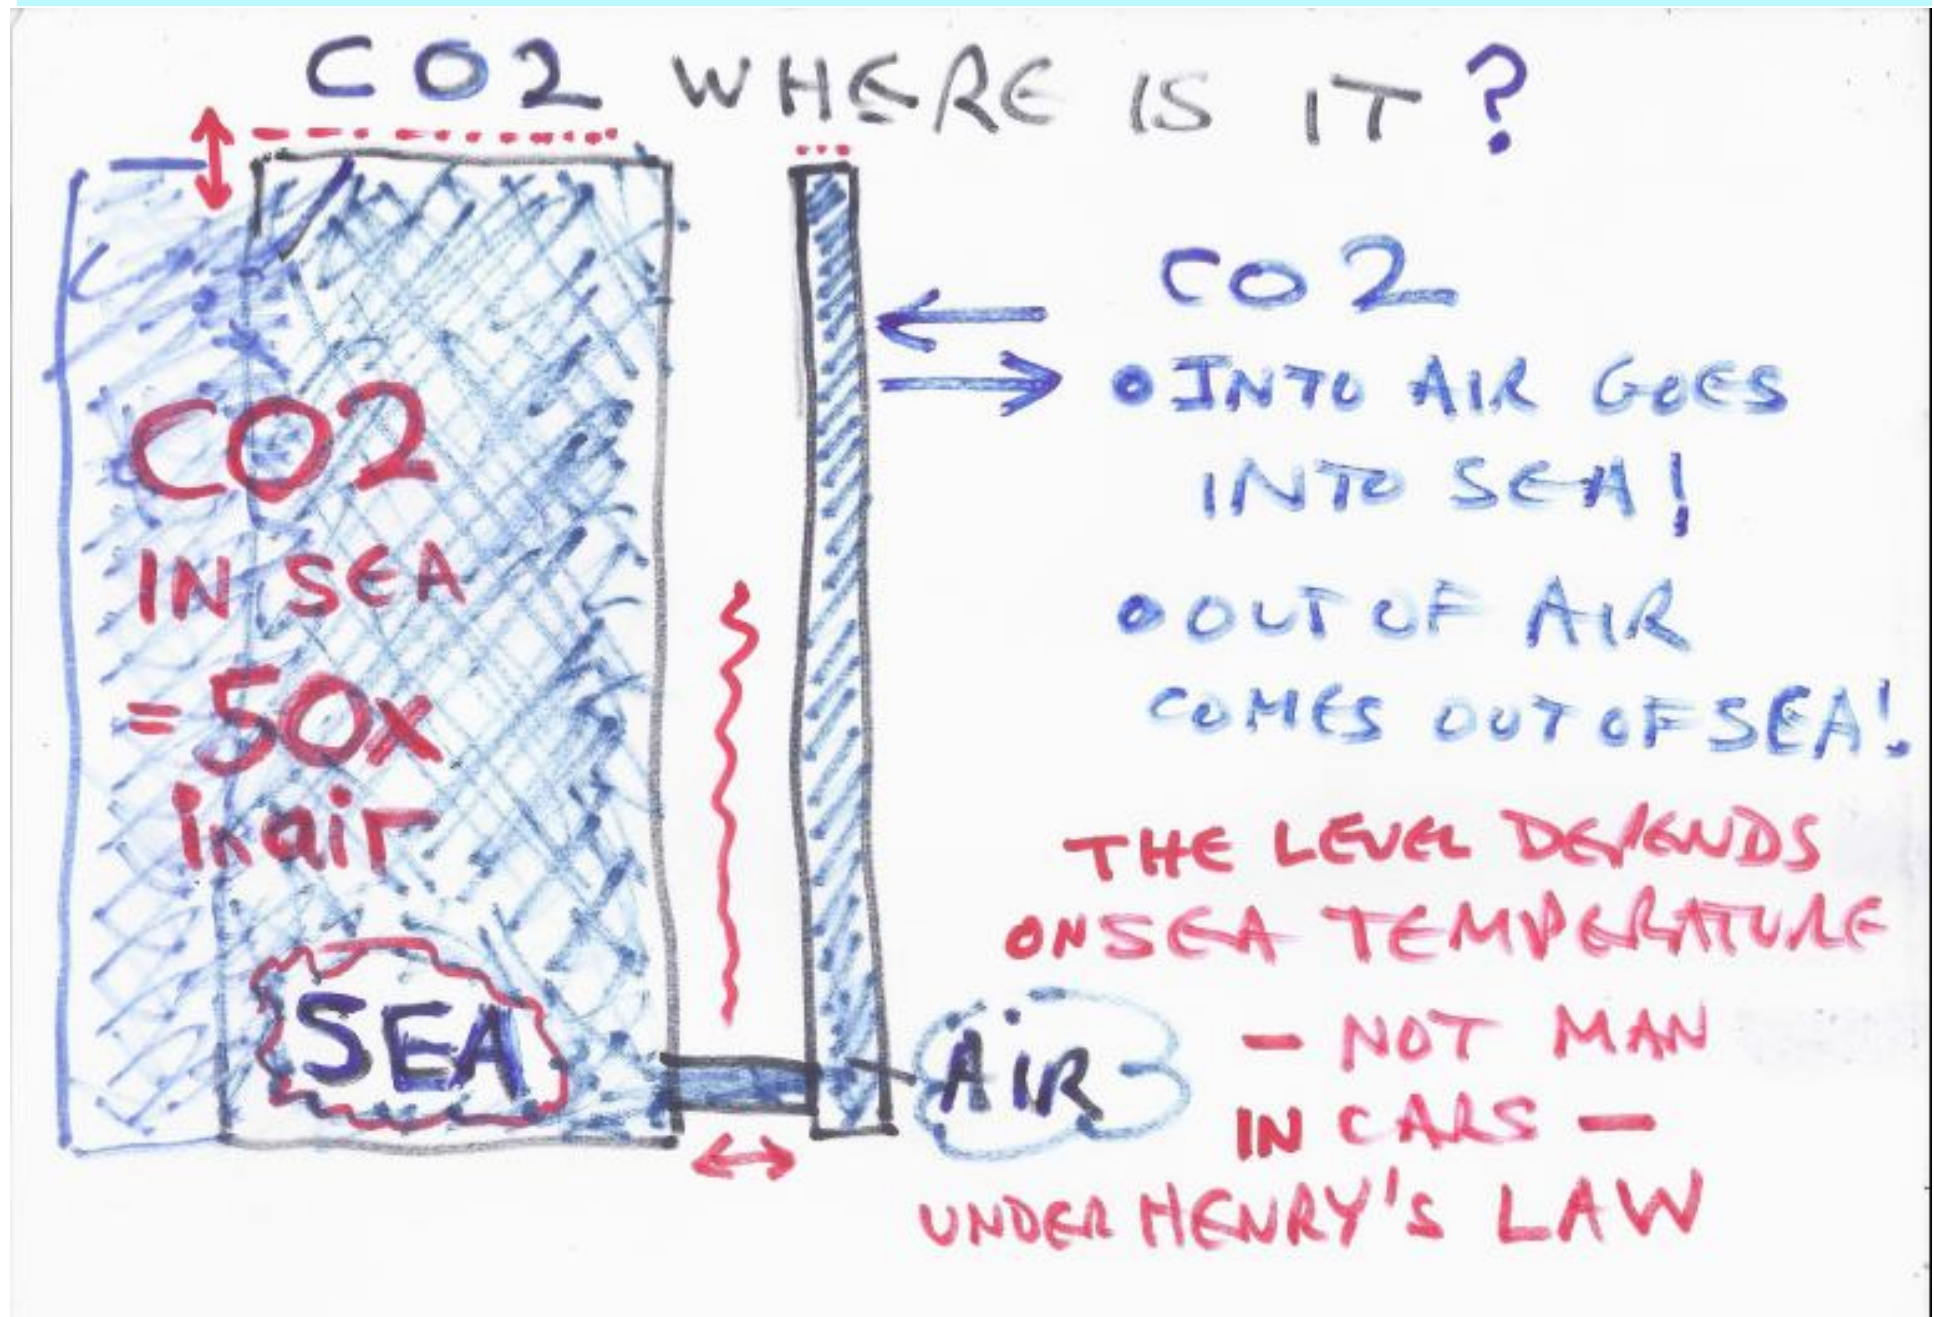 CO2 WHERE IS IT?
CO2
IN SEA
= 50x
in air
SEA
CO2
• INTO AIR GOES
INTO SEA!
• OUT OF AIR
COMES OUT OF SEA!
THE LEVEL DEPENDS
ON SEA TEMPERATURE
- NOT MAN
IN CARS -
UNDER HENRY'S LAW
AIR